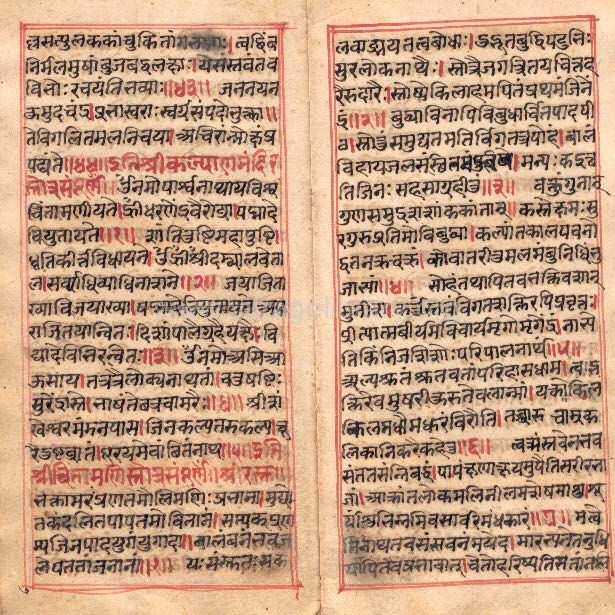 लसत्पुलककंचुकितांगभागाः। त्वद्बिंब
निर्मलमुखांबुजबद्धलक्षाः। यसंस्तवंतव
विभोः रचयंतिभव्याः॥४३॥ जननयन
कुमुदचंद्र। प्रभास्वराः स्वर्गसंपदोभुक्त्वा।
तेविगलितमलनिचया। अचिरान्मोक्षंप्र
पद्यंते॥४४॥ इतिश्रीकल्याणमंदिर
स्तोत्रसंपूर्णं॥ ॐनमोपार्श्वनाथायविश्व
चिंतामणीयते। ह्रीँधरणेंद्रवैरोट्या। पद्मादे
वियुतायते॥१॥ शांतितुष्टिमहापुष्टि।
धृतिकीर्तिविधायने। ॐह्रीँद्विड्व्यालवेता
ल। सर्वाधिव्याधिनाशने॥२॥ जयाजिता
ख्याविजयाख्या।
राजितयान्वितः। दिशांपालैग्रहैर्यक्षैः। वि
द्यादेवीभिरन्वितः॥३॥ ॐनमोअसिआ
उसाय। तत्रत्रैलोक्यनाथतां। चतुःषष्टिः
सुरेंद्रास्ते। भाषंतेछत्रचामरैः॥४॥ श्रीशं
खेश्वरमंमनपास। जिनकल्पतरुकल्प। चू
रयदुष्टव्रातं। पूरयमेवांछितंनाथ॥५॥ इति
श्रीचिंतामणिस्तोत्रसंपूर्णं॥ श्रीरस्तु॥
भक्तामरप्रणतमौलिमणिः प्रभाना। मुद्यो
तकंदलितपापतमोवितानं। सम्यक्प्रण
म्यजिनपादयुगंयुगादा। वालंबनंभवज
लेपततांजनानां॥१॥ यः संस्तुतःसक
लवाङ्मयतत्वबोधाः। दुद्भूतबुद्धिपटुभिः
सुरलोकनाथैः। स्तोत्रैर्जगत्त्रितयचित्तह
रैरुदारैः। स्तोष्येकिलाहमपितंप्रथमंजिनें
द्रं॥२॥ बुद्ध्याविनापिविबुधार्चितपादपी
ठ। स्तोतुंसमुद्यतमतिर्विगतत्रपोहं। बालं
विहायजलसंस्थितमिंदुबिंब। मन्यः कइच्छ
तिजनः सहसाग्रहीतुं॥३॥ वक्तुंगुणान्
गुणसमुद्रशशांककांतान्। कस्तेक्षमःसु
रगुरुप्रतिमोपिबुद्ध्या। कल्पांतकालपवनो
द्धतनक्रचक्रं। कोवातरीतुमलमंबुनिधिंभु
जाभ्यां॥४॥ सोहंतथापितवभक्तिवशान्
मुनीश। कर्तुंस्तवंविगतशक्तिरपिप्रवृत्तः।
प्रीत्यात्मवीर्यमविचार्यमृगोमृगेंद्रं। नाभ्ये
तिकिंनिजशिशोःपरिपालनार्थं॥५॥
अल्पश्रुतंश्रुतवतांपरिहासधाम। त्वद्भ
क्तिरेवमुखरीकुरुतेबलान्मां। यत्कोकिलः
किलमधौमधुरंविरौति। तच्चारुचाम्रक
लिकानिकरैकहेतु॥६॥ त्वत्संस्तवेनभव
संततिसंनिबद्धं। पापंक्षणात्क्षयमुपैतिशरीरभा
जां। आक्रांतलोकमलिनीलमशेषमाशु। सू
र्यांशुभिन्नमिवशार्वरमंधकारं॥७॥ मत्वे
तिनाथतवसंस्तवनंमयेद। मारभ्यतेतनुधि
यापितवप्रभावात्। चेतोहरिष्यतिसतांनलि